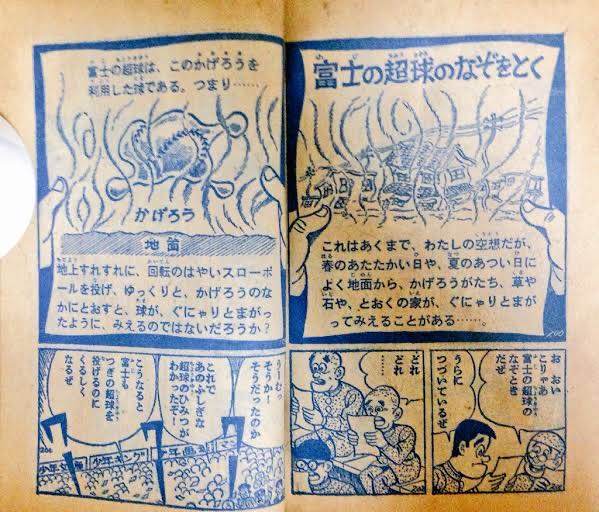 富士の超球のなぞをとく
これはあくまで、わたしの空想だが、
春のあたたかい日や、夏のあつい日に
よく地面から、かげろうがたち、草や
石や、とおくの家が、ぐにゃりとまが
ってみえることがある……。
おおい
こりゃあ
富士の超球の
なぞとき
だぜ
うらに
つづいているぜ
どれ
どれ
……
富士の超球は、このかげろうを
利用した球である。つまり……
かげろう
地面
地上すれすれに、回転のはやいスローボ
ールを投げ、ゆっくりと、かげろうのな
かにとおすと、球が、ぐにゃりとまがっ
たように、みえるのではないだろうか?
うーむっ
そうか!
そうだったのか
これで
あのふしぎな
超球のひみつが
わかったぞ!
こうなると
富士も
つぎの超球を
投げるのに
くるしく
なるぜ
少年キング
少年画